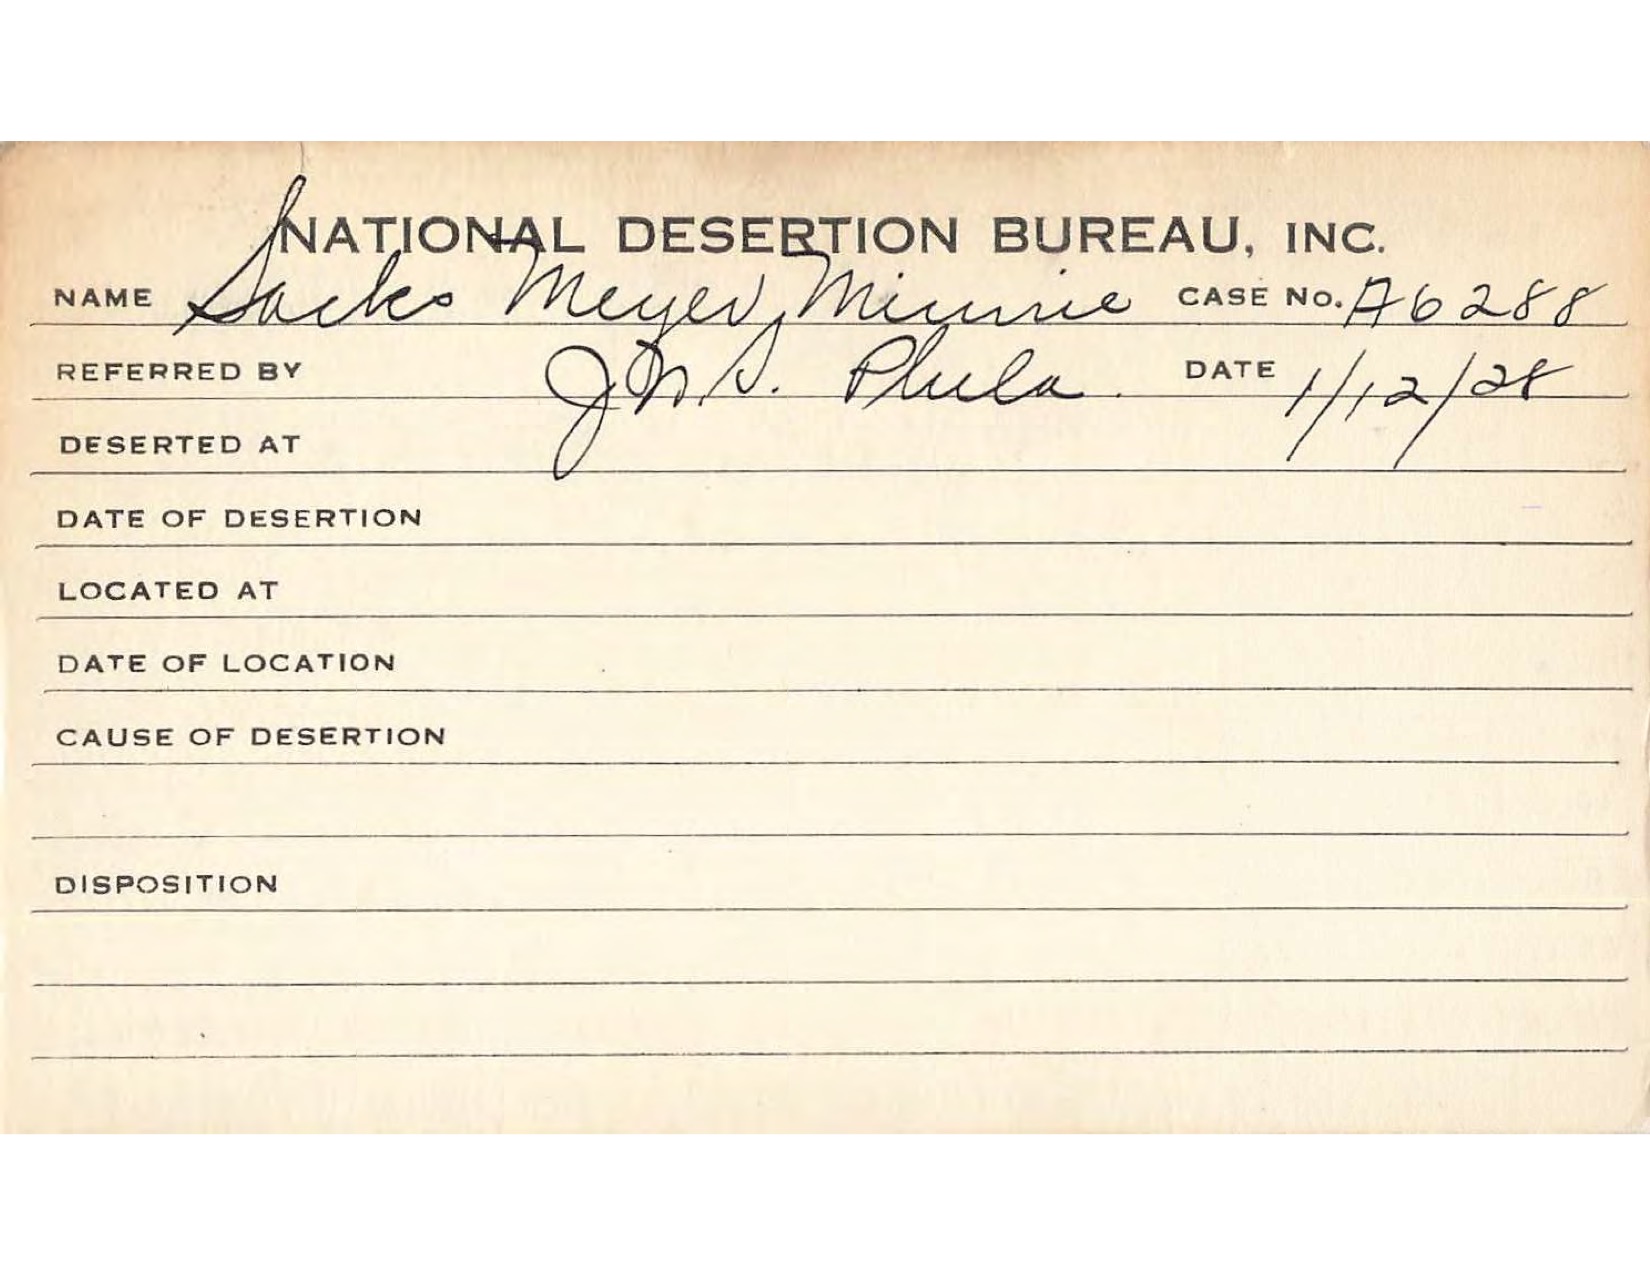 NATIONAL DESERTION BUREAU, INC.
NAME Sacks Meyer, Minnie CASE No. A6288
REFERRED BY J.W.S. Phila. DATE 1/12/28
DESERTED AT
DATE OF DESERTION
LOCATED AT
DATE OF LOCATION
CAUSE OF DESERTION
DISPOSITION